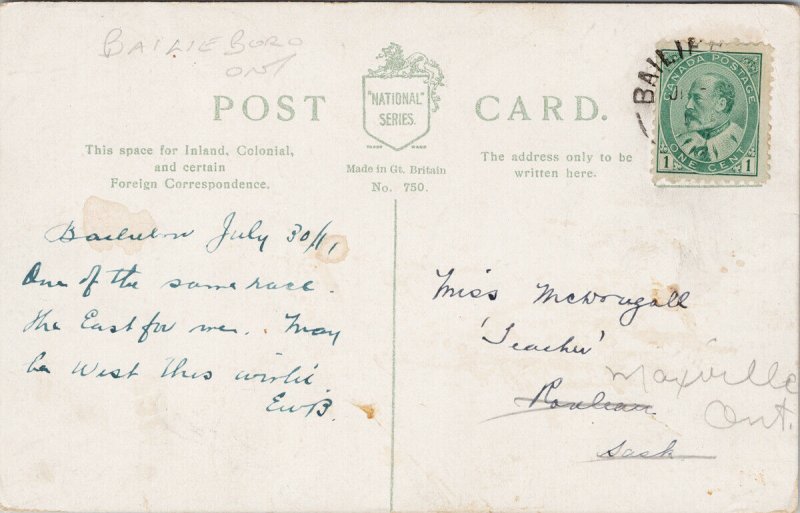 BAILIEBORO
ONT
POST CARD.
"NATIONAL"
SERIES.
TRADE MARK
This space for Inland, Colonial,
and certain
Foreign Correspondence.
Made in Gt. Britain
No. 750.
The address only to be
written here.
BAILIE
CANADA POSTAGE
1 ONE CENT 1
July 30/11,
One of the same race.
The East for me. May
be West this
EWB.
Miss McDougall
'Teacher'
Rouleau
Sask
Maxville
Ont.